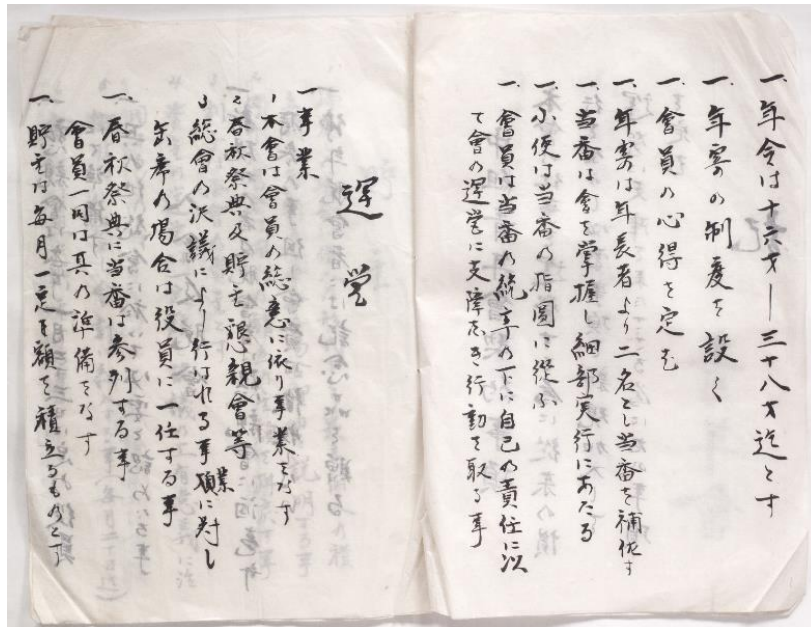 一、年令は十六才―三十八才迄とす
一、年寄の制度を設く
一、會員の心得を定む
一、年寄は年長者より二名とし当番を補佐す
一、当番は會を掌握し細部実行にあたる
一、小使は当番の指図に從ふ
一、會員は当番の統率の下に自己の責任に以
て會の運営に支障なき行動を取る事
運営
一事業
1本會は會員の総意に依り事業をなす
2春秋祭典及貯金懇親會等
3総會の決議により行はれる事業事項に対し
欠席の場合は役員に一任する事
一、春秋祭典に当番は参列する事
會員一同は其の準備をなす
一、貯金は毎月一定を額を積立るものとす